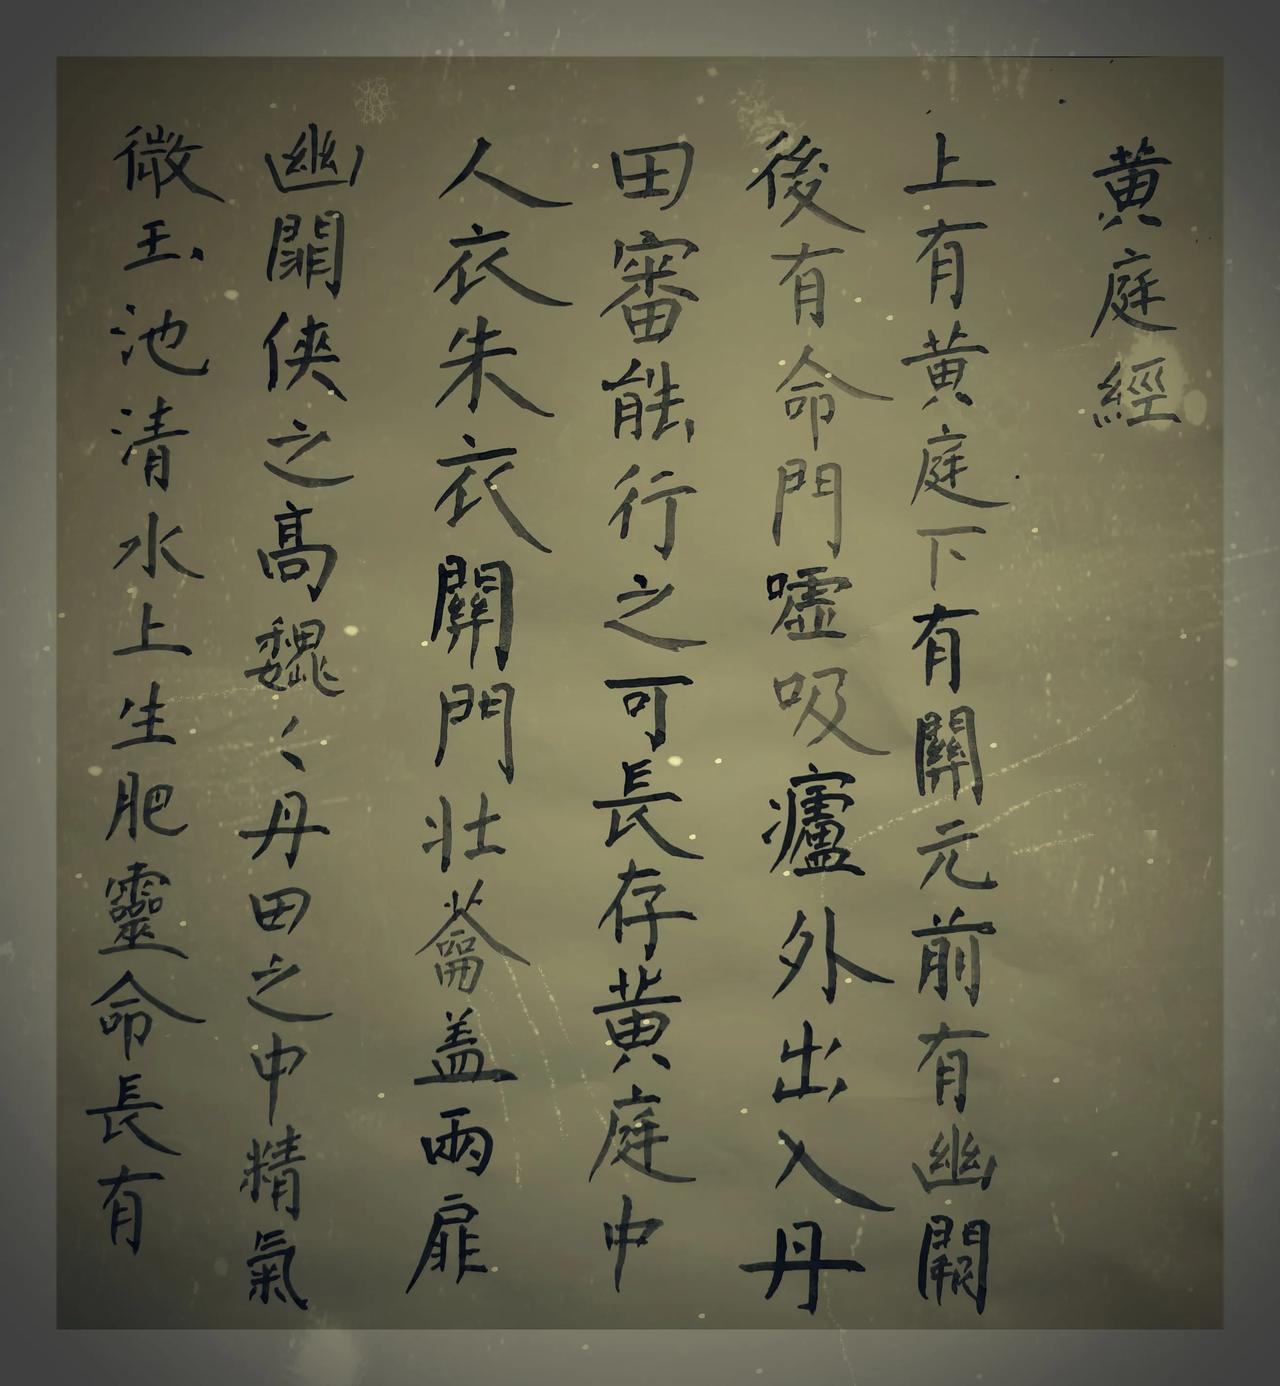 黄庭經
上有黄庭下有關元前有幽闕
後有命門噓吸廬外出入丹
田審能行之可長存黄庭中
人衣朱衣關門壯蘥盖兩扉
幽闕俠之高魏〻丹田之中精氣
微玉池清水上生肥靈命長有